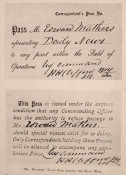 Correspondent's Pass No.
Pass Mr. Edward Mathers
representing Daily News
to any point within the Field of
Operations
By command
This Pass is issued under the express
condition that any Commanding Officer
has the authority to refuse passage to
Mr. Edward Mathers
should special reason exist for so doing.
Daily Correspondents holding these Passes
will be allowed to accompany any
Force, by Command